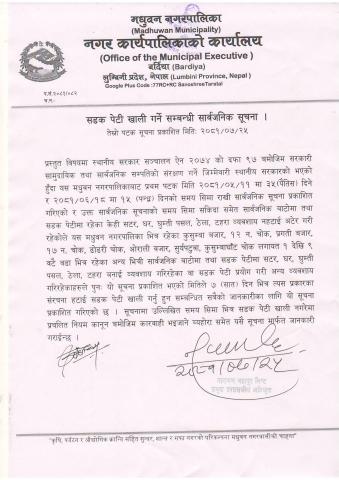 मधुवन नगरपालिका
(Madhuwan Municipality)
नगर कार्यपालिकाको कार्यालय
(Office of the Municipal Executive )
बर्दिया (Bardiya)
लुम्बिनी प्रदेश, नेपाल (Lumbini Province, Nepal )
Google Plus Code :77RC+RC SanoshreeTaratal
प.सं.२०८१/०८२
च.नं.-
सडक पेटी खाली गर्ने सम्बन्धी सार्वजनिक सूचना ।
तेस्रो पटक सूचना प्रकाशित मिति: २०८१/०७/२५
प्रस्तुत बिषयमा स्थानीय सरकार सञ्चालन ऐन २०७४ को दफा ९७ बमोजिम सरकारी
सामुदायिक तथा सार्वजनिक सम्पत्तिको संरक्षण गर्ने जिम्मेवारी स्थानीय सरकारको भएको
हुँदा यस मधुबन नगरपालिकाबाट प्रथम पटक मिति २०८१/०५/११ मा ३५(पैंतिस) दिने
र २०८१/०६/१८ मा १५ (पन्ध्र) दिनको समय सिमा राखी सार्वजनिक सूचना प्रकाशित
गरिएको र उक्त सार्वजनिक सूचनाको समय सिमा सकिदा समेत सार्वजनिक बाटोमा तथा
सडक पेटीमा रहेका केही सटर, घर, घुम्ती पसल, ठेला, टहरा व्यवशाय नहटाई अटेर गरी
रहेकोले यस मधुबन नगरपालिका भित्र रहेका कुसुम्बा बजार, १२ न. चोक, प्रगती बजार,
१७ न. चोक, डोडरी चोक, ओराली बजार, सुर्यपटुवा, कुसुम्बाघाट चोक लगायत १ देखि ९
वटै वडा भित्र रहेका अन्य भित्री सार्वजनिक बाटोमा तथा सडक पेटीमा सटर, घर, घुम्ती
पसल, ठेला, टहरा बनाई व्यवशाय गरिरहेका वा सडक पेटी प्रयोग गरी अन्य व्यवशाय
गरिरहेकाहरुले पुनः यो सूचना प्रकाशित भएको मितिले ७ (सात) दिन भित्र त्यस प्रकारका
संरचना हटाई सडक पेटी खाली गर्नु हुन सम्बन्धित सबैको जानकारीका लागि यो सूचना
प्रकाशित गरिएको छ । सूचनामा उल्लिखित समय सिमा भित्र सडक पेटी खाली नगरेमा
प्रचलित नियम कानून बमोजिम कारबाही भइजाने व्यहोरा समेत यसै सूचना मार्फत जानकारी
गराईन्छ ।
२०८१/०७/२५
नारायण बहादुर सिंह
प्रमुख प्रशासकीय अधिकृत
"कृषि, पर्यटन र औद्योगिक क्रान्ति सहित सुन्दर, शान्त र सफा नगरको परिकल्पना मधुवन नगरवासीको चाहना"